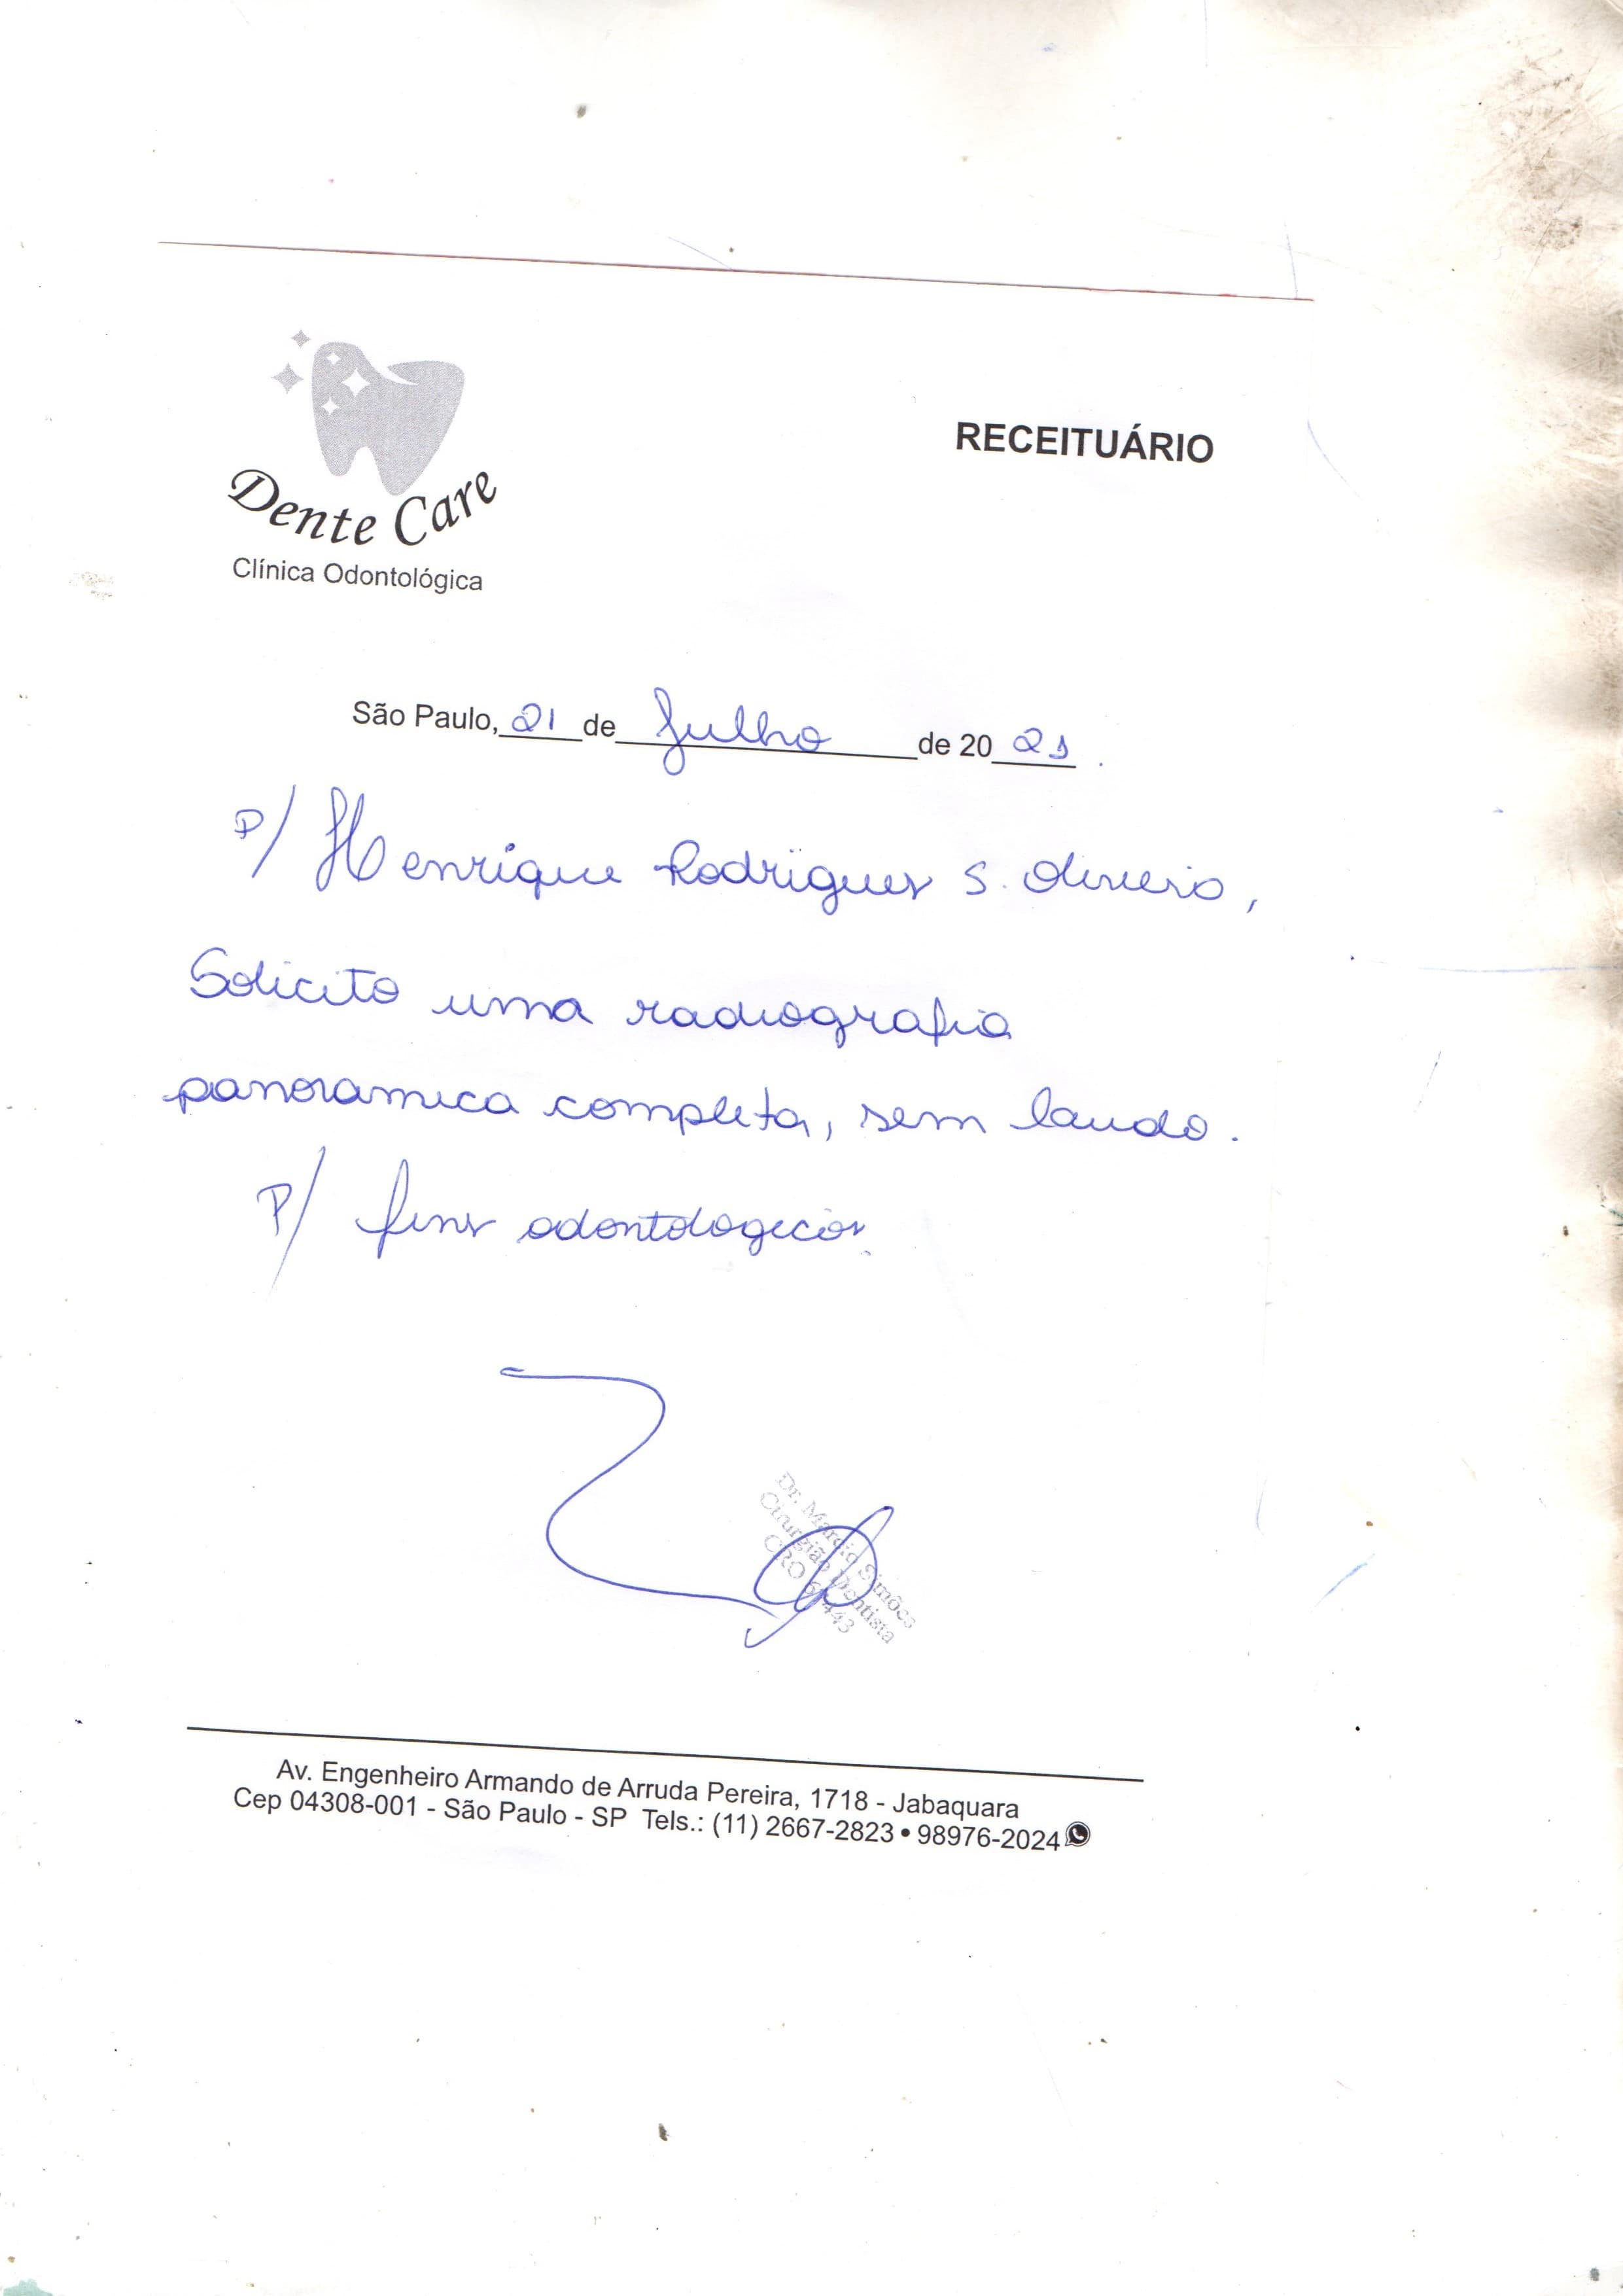 Dente Care
Clínica Odontológica
RECEITUÁRIO
São Paulo, 21 de Julho de 2021.
P/ Henrique Rodrigues S. Oliveira,
Solicito uma radiografia
panoramica completa, sem laudo.
P/ fins odontologicos.
Dr. Marcio Simões
Cirurgião Dentista
CRO
Av. Engenheiro Armando de Arruda Pereira, 1718 - Jabaquara
Cep 04308-001 - São Paulo - SP Tels.: (11) 2667-2823 • 98976-2024